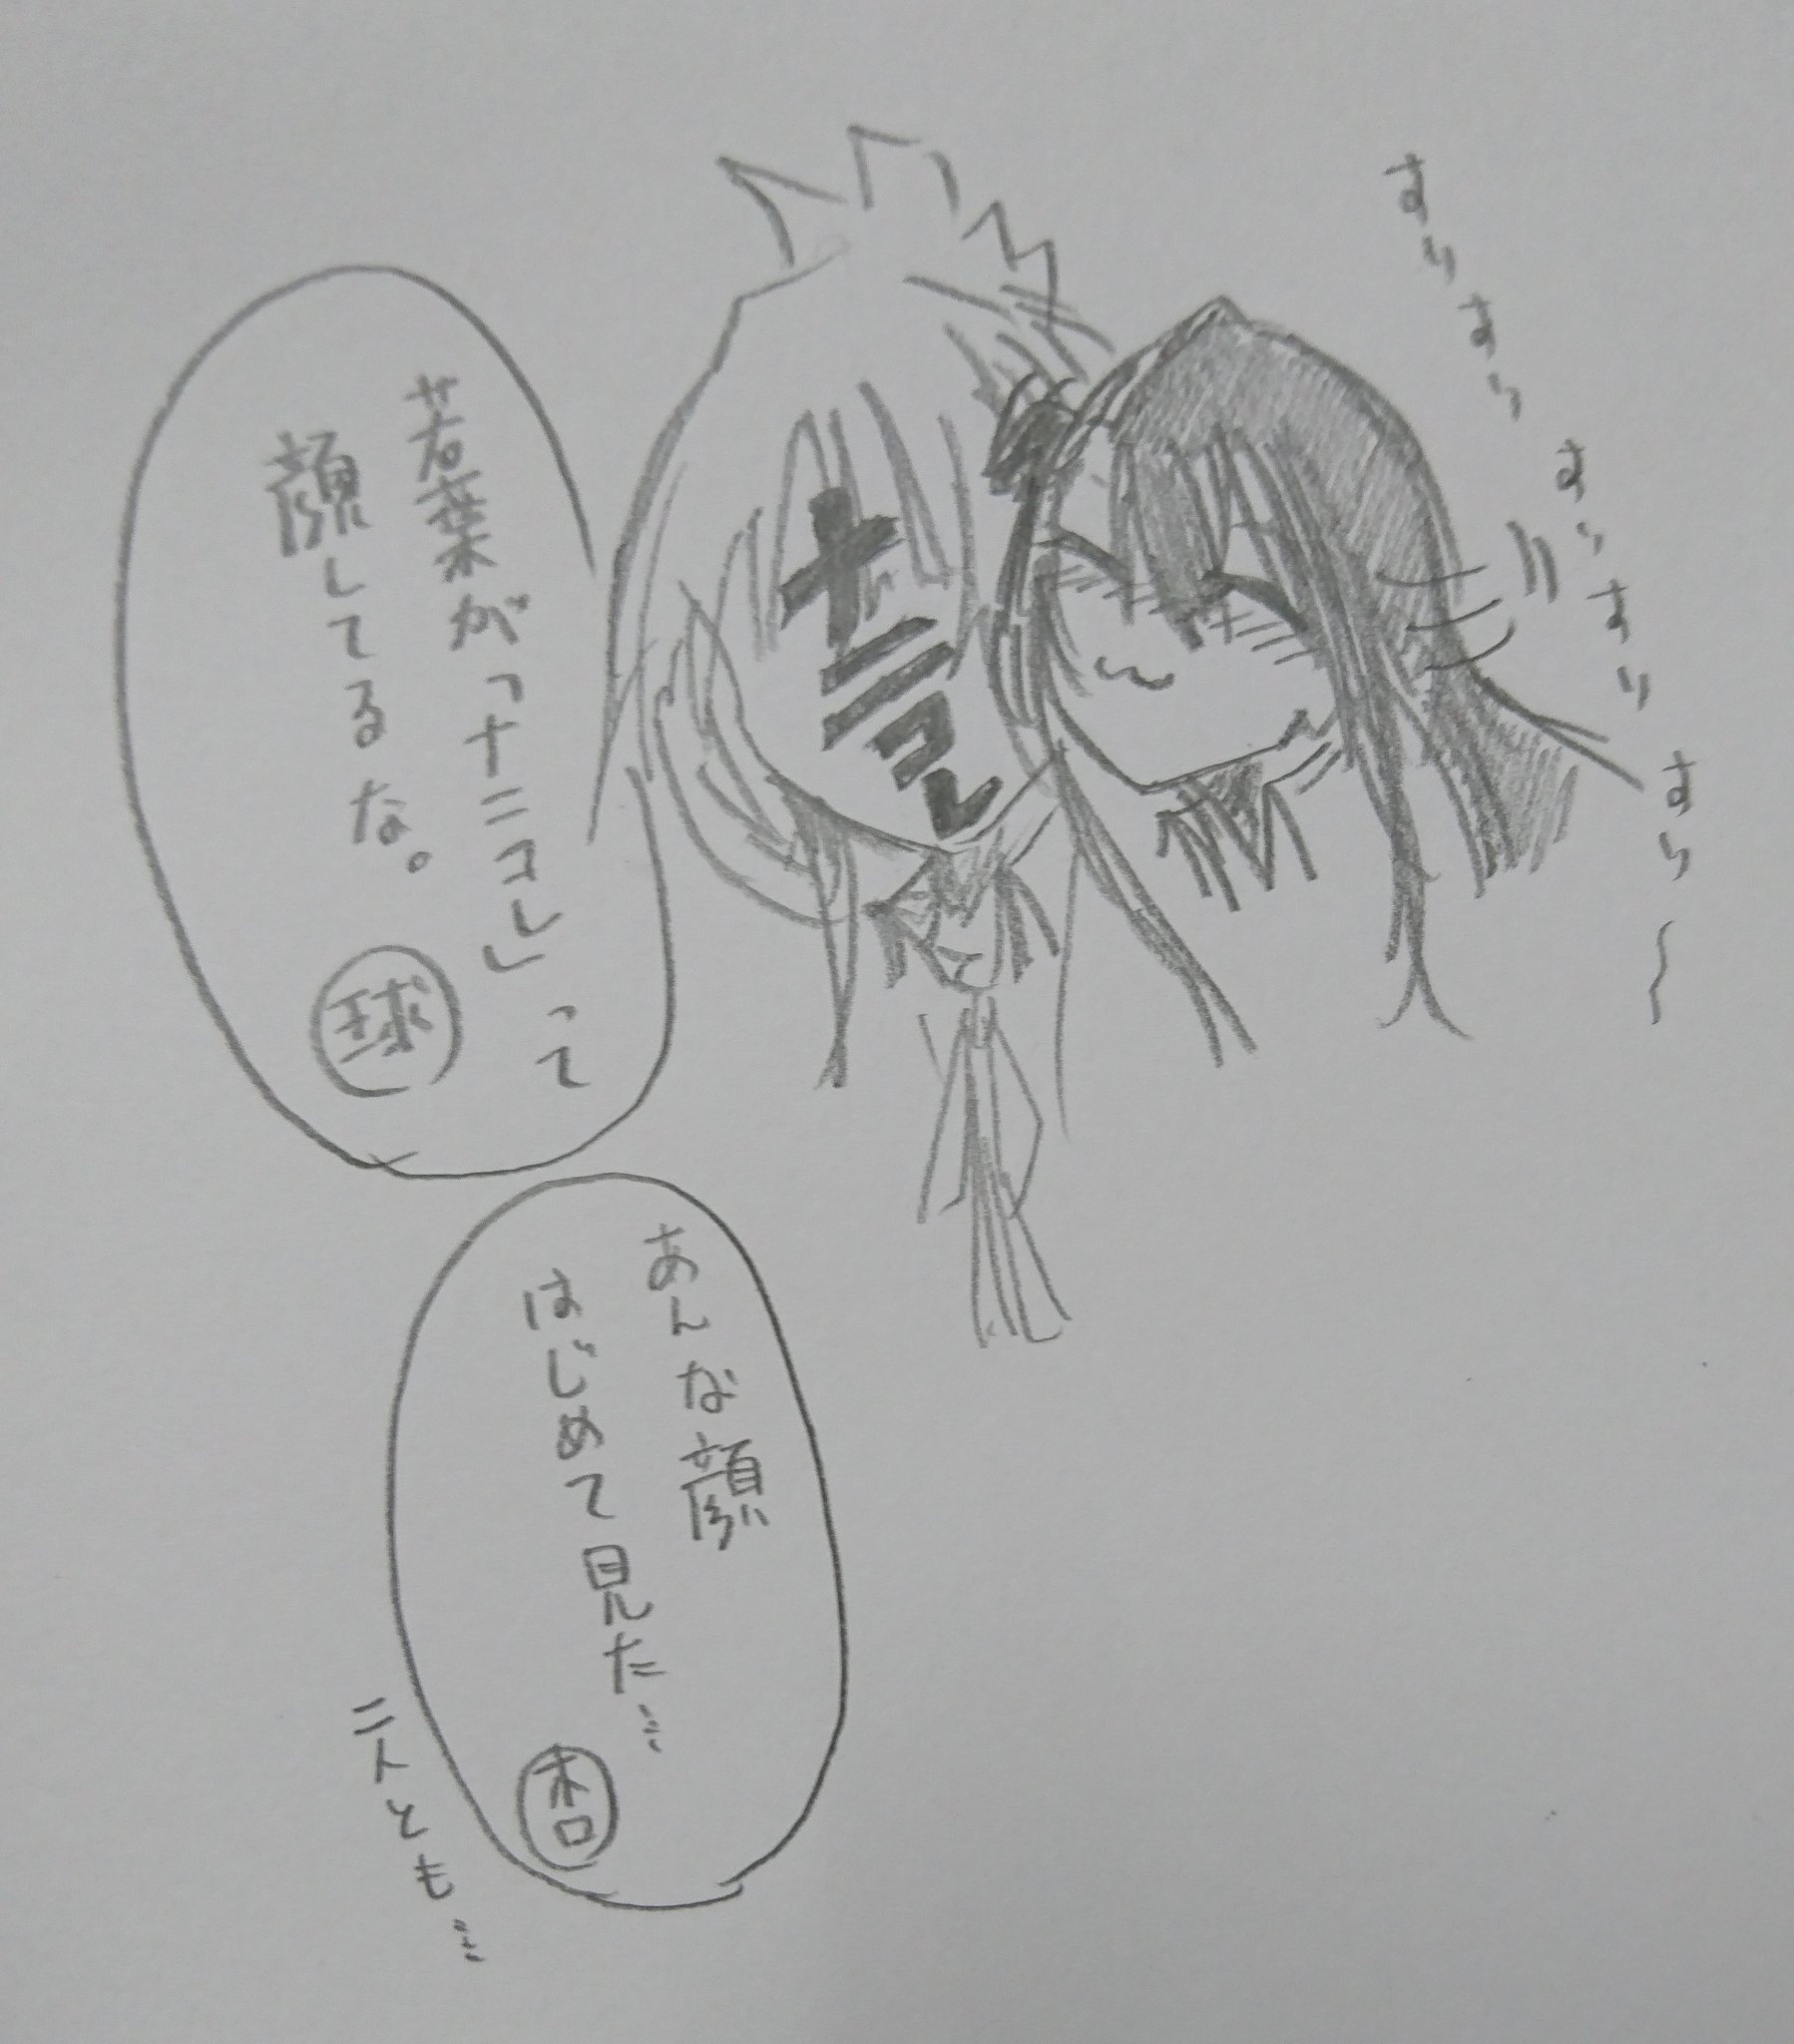 すりすりすりすりすり～
ナニコレ
若葉が「ナニコレ」って
顔してるな。
球
あんな顔
はじめて見た…
杏
二人とも…